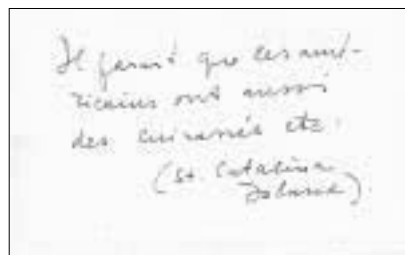 Il parait que les amé-
ricains ont aussi
des cuirassés etc.
(St. Catalina
Island)